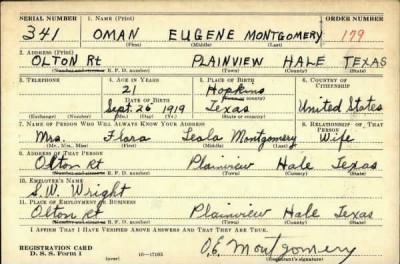 SERIAL NUMBER 1. NAME (Print) ORDER NUMBER
341 OMAN EUGENE MONTGOMERY 179
(First) (Middle) (Last)
2. ADDRESS (Print)
OLTON Rt PLAINVIEW HALE TEXAS
(Number and street or R. F. D. number) (Town) (County) (State)
3. TELEPHONE 4. AGE IN YEARS 5. PLACE OF BIRTH 6. COUNTRY OF CITIZENSHIP
21 Hopkins
DATE OF BIRTH (Town or county)
Sept. 26 1919 Texas United States
(Exchange) (Number) (Mo.) (Day) (Yr.) (State or country)
7. NAME OF PERSON WHO WILL ALWAYS KNOW YOUR ADDRESS 8. RELATIONSHIP OF THAT PERSON
Mrs. Flora Leola Montgomery Wife
(Mr., Mrs., Miss) (First) (Middle) (Last)
9. ADDRESS OF THAT PERSON
Olton Rt Plainview Hale Texas
(Number and street or R. F. D. number) (Town) (County) (State)
10. EMPLOYER'S NAME
S. W. Wright
11. PLACE OF EMPLOYMENT OR BUSINESS
Olton Rt Plainview Hale Texas
(Number and street or R. F. D. number) (Town) (County) (State)
I AFFIRM THAT I HAVE VERIFIED ABOVE ANSWERS AND THAT THEY ARE TRUE.
REGISTRATION CARD
D. S. S. Form 1 (over) 16—17105
O. E. Montgomery